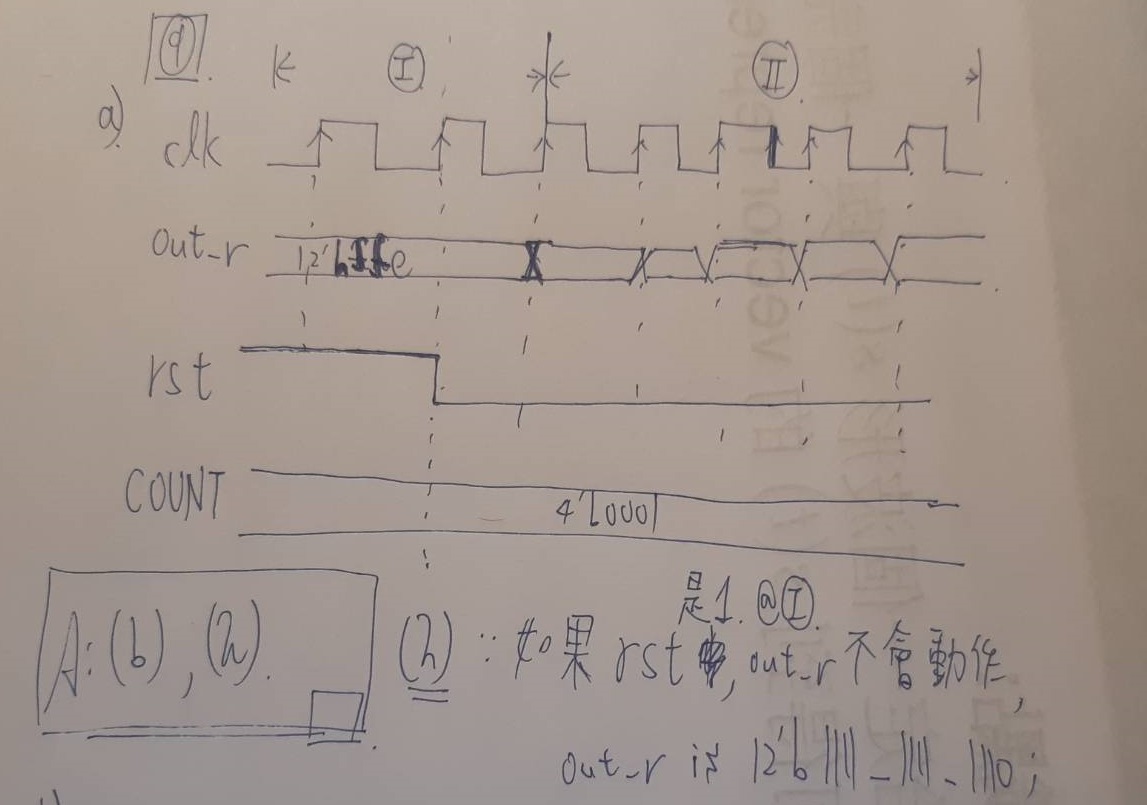 9.
I II
a)
clk
out_r 12'hffe
rst
COUNT 4'b0001
是1.@I.
A:(b),(h). (h)∵如果rst, out_r不會動作,
out_r is 12'b1111_1111_1110;